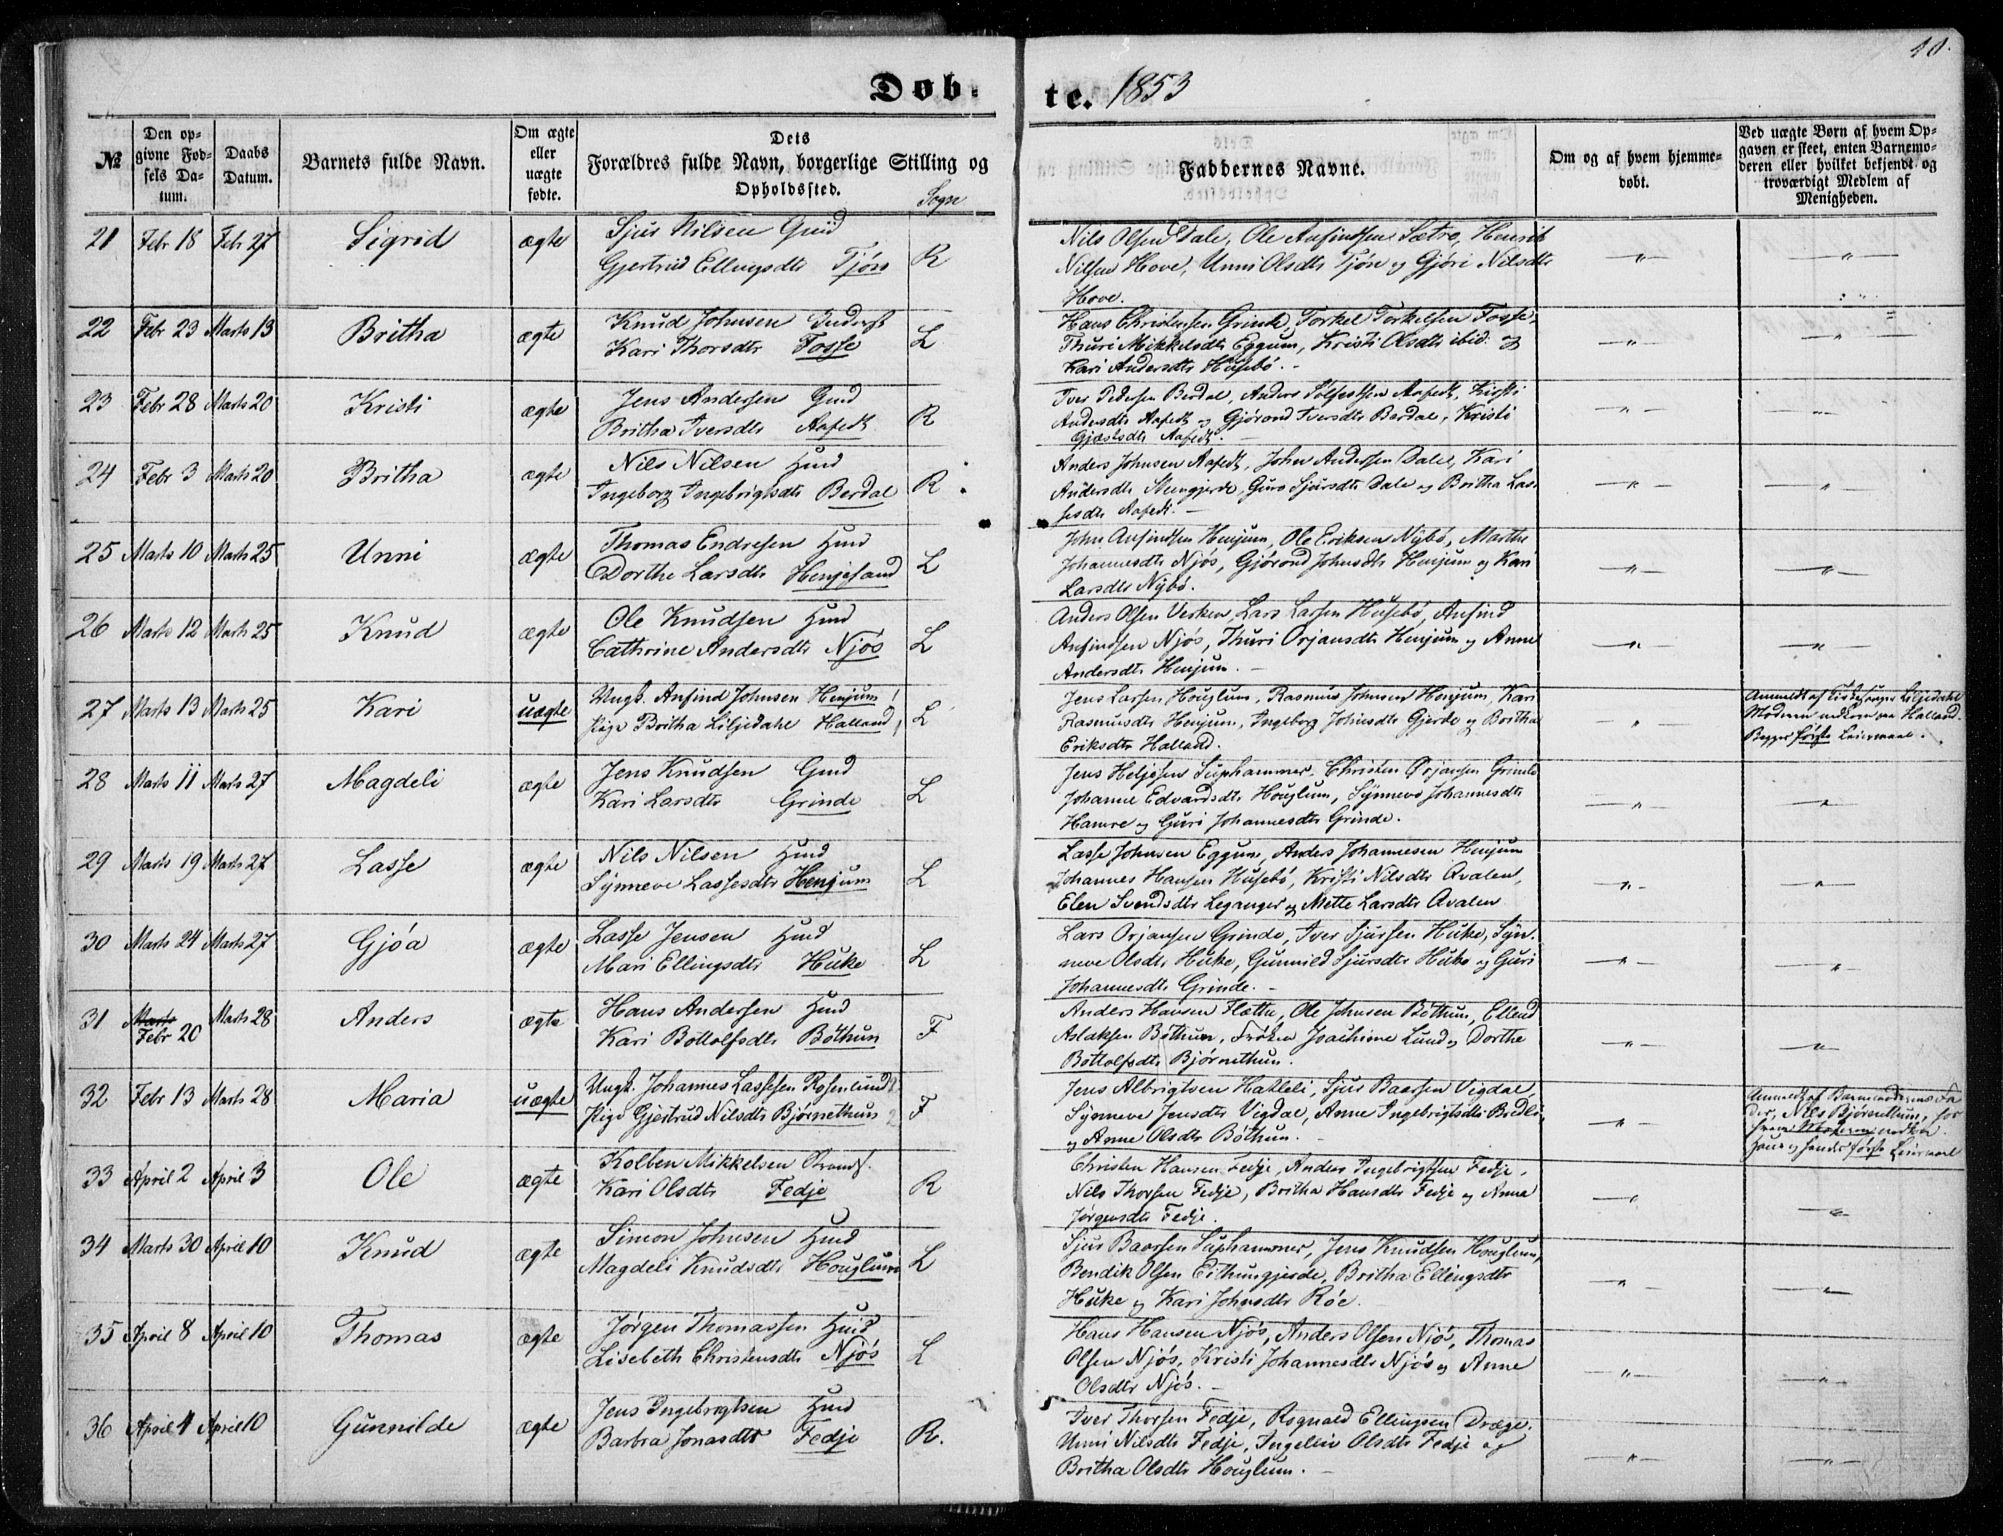 10.
Døb-
te. 1853
№
Den op-
givne Fød-
sels Da-
tum.
Daabs
Datum.
Barnets fulde Navn.
Om ægte
eller
uægte
fødte.
Dets
Forældres fulde Navn, borgerlige Stilling og
Opholdssted.
Sogn
Faddernes Navne.
Om og af hvem hjemme-
døbt.
Ved uægte Børn af hvem Op-
gaven er skeet, enten Barnemo-
deren eller hvilket bekjendt og
troværdigt Medlem af
Menigheden.
21 Febr 18 Feb 27 Sigrid ægte
Sjus Nilsen
Gjertrud Ellingsdtr Tjøn R
Nils Olsen Dale, Ole Anfindsen Sætre, Henrik
Nilsen Hove, Unni Olsdtr Tjøn og Gjøri Nilsdtr
Hove.
22 Febr 23 Marts 13 Britha ægte
Knud Johnsen Inderst
Kari Thorsdtr Fosse L
Hans Christensen Grinde, Torkel Torkelsen Fosse,
Thuri Mikkelsdtr Eggum, Kristi Olsdtr ibid. og
Kari Andersdtr Husebø.
23 Febr 28 Marts 20 Kristi ægte
Jens Andersen Gmd
Britha Iversdtr Aafedt R
Iver Pedersen Berdal, Anders Solfestsen Aafedt, Kristi
Andersdtr Aafedt og Gjørond Iversdtr Berdal, Kristi
Gjæstsdtr Aafedt.
24 Febr 3 Marts 20 Britha ægte
Nils Nilsen Hmd
Ingeborg Ingebrigtsdtr Berdal R.
Anders Johnsen Aafedt, John Andersen Dale, Kari
Andersdtr Stengjerde, Guro Sjursdtr Dale og Britha Las-
sesdtr Aafedt.
25 Marts 10 Marts 25 Unni ægte
Thomas Endresen Hmd
Dorthe Larsdtr Henjesand L
John Anfindsen Henjum, Ole Eriksen Nybø, Marthe
Johannesdtr Njøs, Gjørond Johnsdtr Henjum og Kari
Larsdtr Nybø.
26 Marts 12 Marts 25 Knud ægte
Ole Knudsen Hmd
Cathrine Andersdtr Njøs L
Anders Olsen Verken, Lars Larsen Husebø, Anfind
Anfindsen Njøs, Thuri Orjansdtr Henjum og Anne
Andersdtr Henjum.
27 Marts 13 Marts 25 Kari uægte
Ungk. Anfind Johnsen Henjum
Pige Britha Liljedahl Halland L
Jens Larsen Houglum, Rasmus Johnsen Henjum, Kari
Rasmusdtr Henjum, Ingeborg Johnsdtr Gjerde og Britha
Eriksdtr Halland.
Anmeldt af Liljedahl
Moderen Halland.
Begges første Leiermaal.
28 Marts 11 Marts 27 Magdeli ægte
Jens Knudsen Gmd
Kari Larsdtr Grinde L
Jens Heljesen Suphammer, Christen Ørjansen Grinde
Johanne Edvardsdtr Houglum, Synneve Johannesdtr
Hamre og Guri Johannesdtr Grinde.
29 Marts 19 Marts 27 Lasse ægte
Nils Nilsen Hmd
Synneve Lassesdtr Henjum L
Lasse Johnsen Eggum, Anders Johannesen Henjum
Johannes Hansen Husebø, Kristi Nilsdtr Avalen,
Elen Svendsdtr Leganger og Mette Larsdtr Avalen
30 Marts 24 Marts 27 Gjøa ægte
Lasse Jensen Hmd
Mari Ellingsdtr Huke L
Lars Orjansen Grinde, Iver Sjursen Huke, Syn-
neve Olsdtr Huke, Gunnild Sjursdtr Huke og Guri
Johannesdtr Grinde.
31 Marts
Febr 20 Marts 28 Anders ægte
Hans Andersen Hmd
Kari Bottolfsdtr Bøthun F
Anders Hansen Flætte, Ole Johnsen Bøthum, Ellend
Aslaksen Bøthum, Frøken Joachime Lund og Dorthe
Bottolfsdtr Bjørnethun.
32 Febr 13 Marts 28 Maria uægte
Ungk. Johannes Lassesen Rosenlund
Pige Gjertrud Nilsdtr Bjørnethun F
Jens Albrigtsen Hatleli, Sjur Baarsen Vigdal,
Synneve Jensdtr Vigdal, Anne Ingebrigtsdtr
og Anne Olsdtr Bøthum.
Anmeldt af Barnemoderens Fa
der, Nils Bjørnethum,
Hans og hendes første Leiermaal
33 April 2 April 3 Ole ægte
Kolben Mikkelsen Strands.
Kari Olsdtr Fedje R
Christen Hansen Fedje, Anders Ingebrigtsen Fedje,
Nils Thorsen Fedje, Britha Hansdtr Fedje og Anna
Jørgensdtr Fedje.
34 Marts 30 April 10 Knud ægte
Simon Johnsen Hmd
Magdeli Knudsdtr Houglum L
Sjur Baarsen Suphammer, Jens Knudsen Houglum,
Bendik Olsen Eithungjerde, Britha Ellingsdtr
Huke og Kari Johnsdtr Røe.
35 April 8 April 10 Thomas ægte
Jørgen Thomassen Hmd
Lisebeth Christensdtr Njøs L
Hans Hansen Njøs, Anders Olsen Njøs, Thomas
Olsen Njøs, Kristi Johannesdtr Njøs og Anne
Olsdtr Njøs.
36 April 4 April 10 Gunnilde ægte
Jens Ingebrigtsen Hmd
Barbra Jonasdtr Fedje R.
Iver Thorsen Fedje, Rognald Ellingsen Dræge.
Unni Nilsdtr Fedje, Ingeliv Olsdtr Fedje og
Britha Olsdtr Houglum.